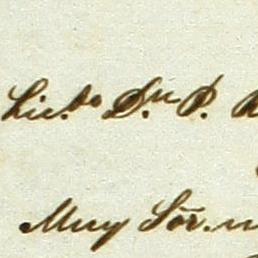 Lic.do D.n P.
Muy Sor.